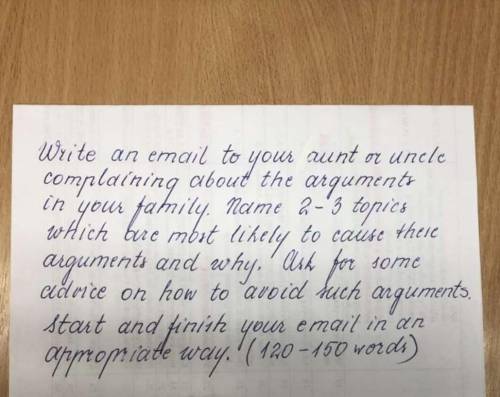 Write an email to your aunt or uncle
complaining about the arguments
in your family. Name 2-3 topics
which are most likely to cause these
arguments and why. Ask for some
advice on how to avoid such arguments.
Start and finish your email in an
appropriate way. (120-150 words)